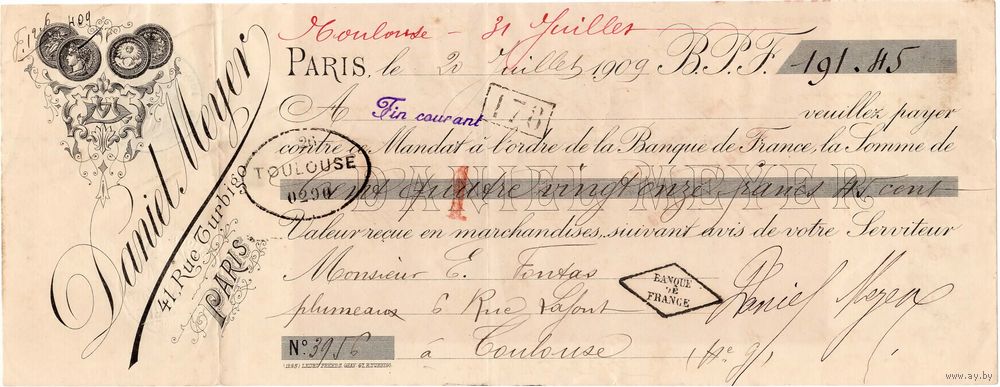 6 409
Toulouse - 31 Juillet
PARIS, le 20 Juillet 1909 B.P.F. 191.45
A Fin courant 178 veuillez payer
contre ce Mandat à l'ordre de la Banque de France, la Somme de
TOULOUSE
0290
Cent quatre vingt onze francs 45 cent
DANIEL MEYER
1
Valeur reçue en marchandises, suivant avis de votre Serviteur
Daniel Meyer
41, Rue Turbigo
PARIS
Monsieur E. Fontas
plumeaux 6 Rue Lafont
BANQUE
DE
FRANCE
Daniel Meyer
N° 3956 à Toulouse
www.ay.by